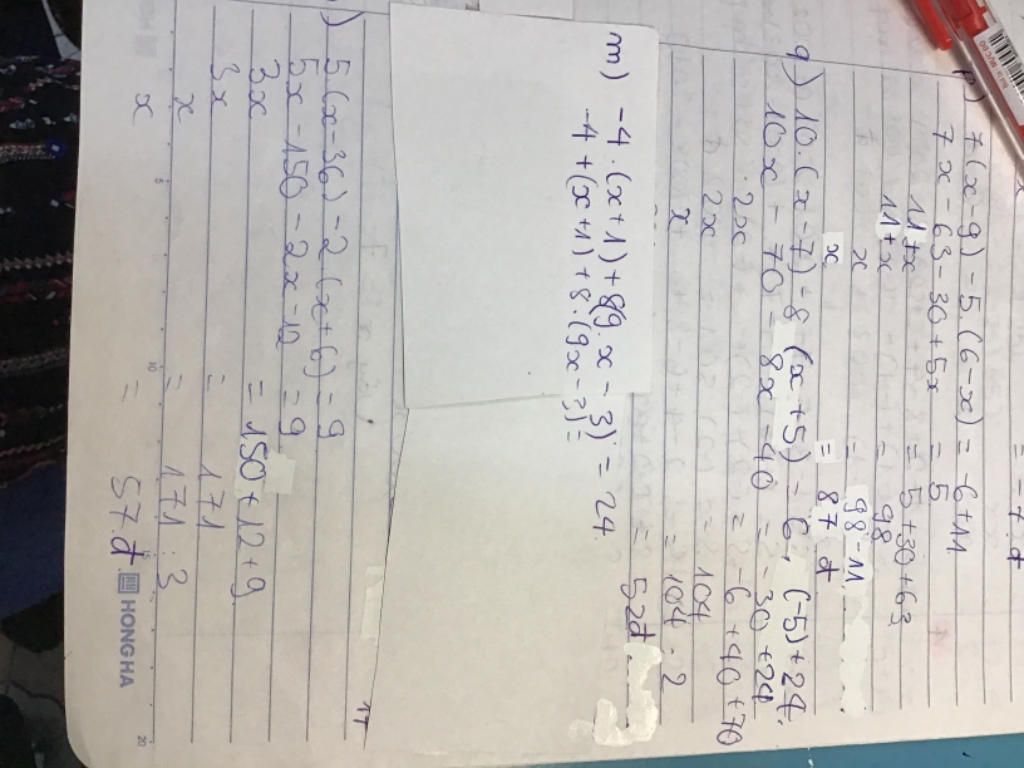 = -7.đ
p) 7(x-9) - 5.(6-x) = -6+11
7x - 63 - 30 + 5x = 5
11+x = 5+30+63
11+x = 98
x = 98-11
x = 87 đ
q) 10.(x-7) - 8(x+5) = 6.(-5)+24.
10x - 70 - 8x - 40 = -30+24
2x = -6+40+70
2x = 104
x = 104:2
= 52đ
m) -4.(x+1)+89.x-3) = 24
-4+(x+1)+8.(9x-3)=
5(x-36)-2(x+6) = 9
5x - 150 - 2x - 12 = 9
3x = 150+12+9
3x = 171
x = 171:3
x = 57.đ
HONGHA
5 10 15 20